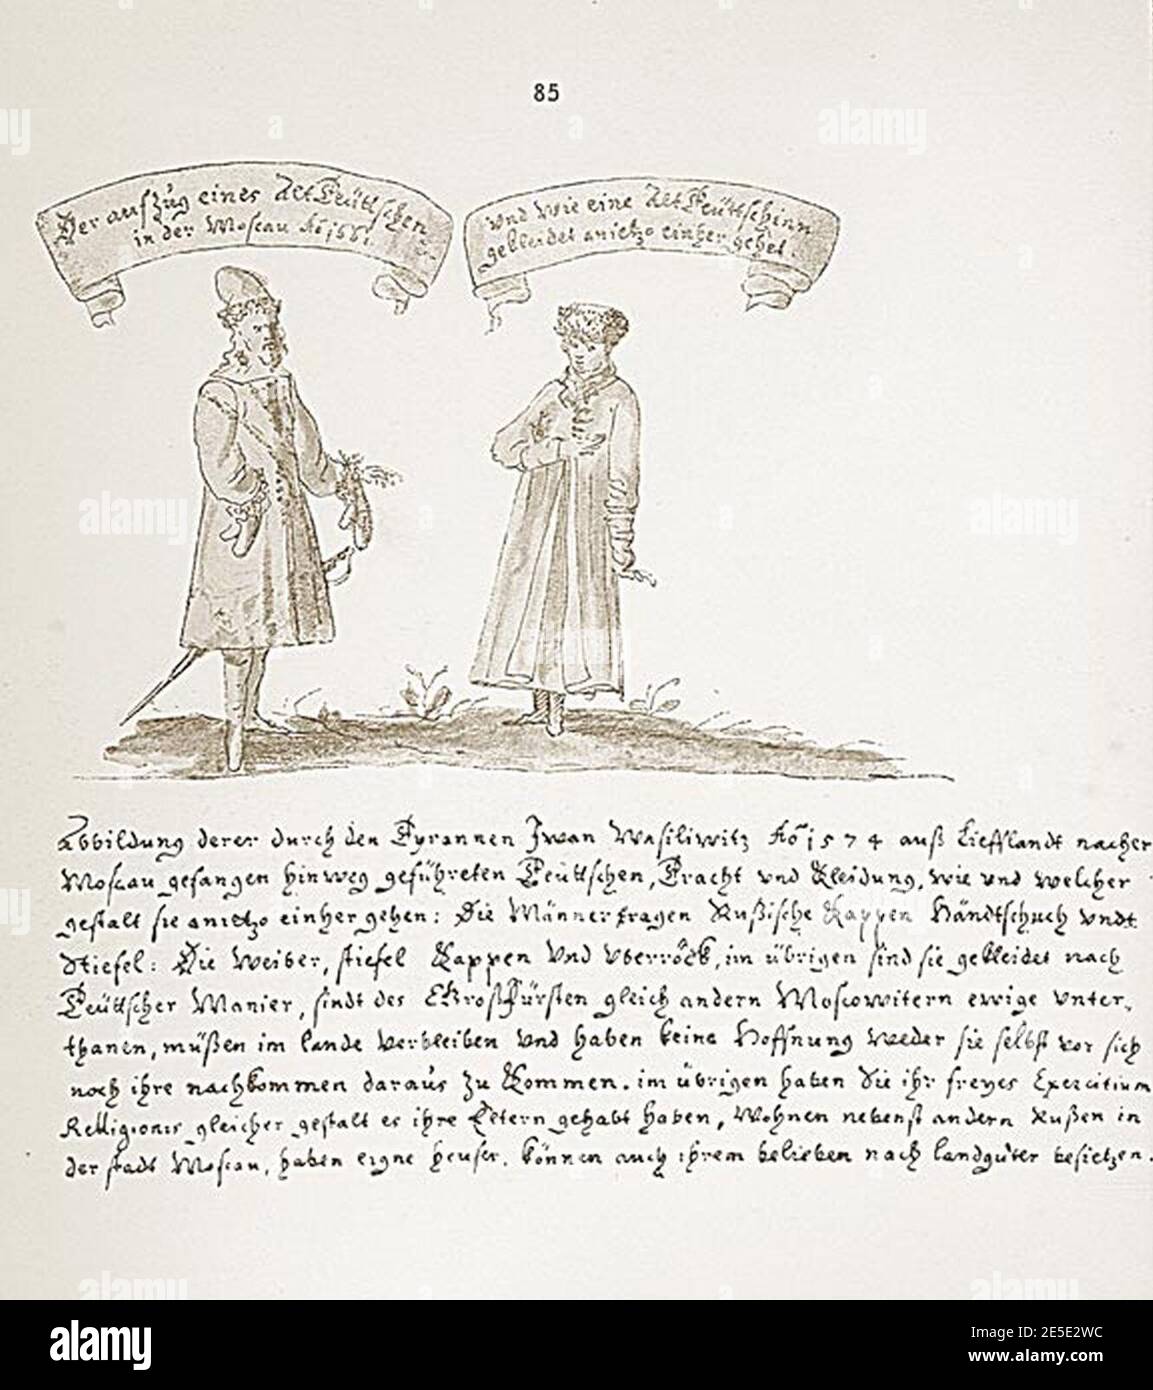 85
Der aufzug eines AltTeütschen
in der Moscau Aõ 1661.
Und wie eine AltTeüttschinn
gekleidet anietzo einher gehet.
Abbildung derer durch den Tyrannen Iwan Wasiliwitz Aõ 1574 auß Liefflandt nacher
Moscau gefangen hinweg geführeten Teüttschen, Tracht und Kleidung, wie und welcher
gestalt sie anietzo einher gehen: Die Männer tragen Rußische Kappen Händtschuch undt
Stiefel: Die Weiber, stiefel Kappen Und uberröck, im übrigen sind sie gekleidet nach
Teüttscher Manier, sindt des GroßFürsten gleich andern Moscowitern ewige unter,
thanen, müßen im lande verbleiben Und haben keine Hoffnung weder sie selbst vor sich
noch ihre nachkommen daraus zu Kommen. im übrigen haben Sie ihr freyes Exercitium
Relligionis gleicher gestalt es ihre Eltern gehabt haben, Wohnen nebenst andern Rußen in
der stadt Moscau, haben eigne heuser. können auch ihrem belieben nach landgüter besietzen.
alamy
Image ID: 2E5E2WC
www.alamy.com